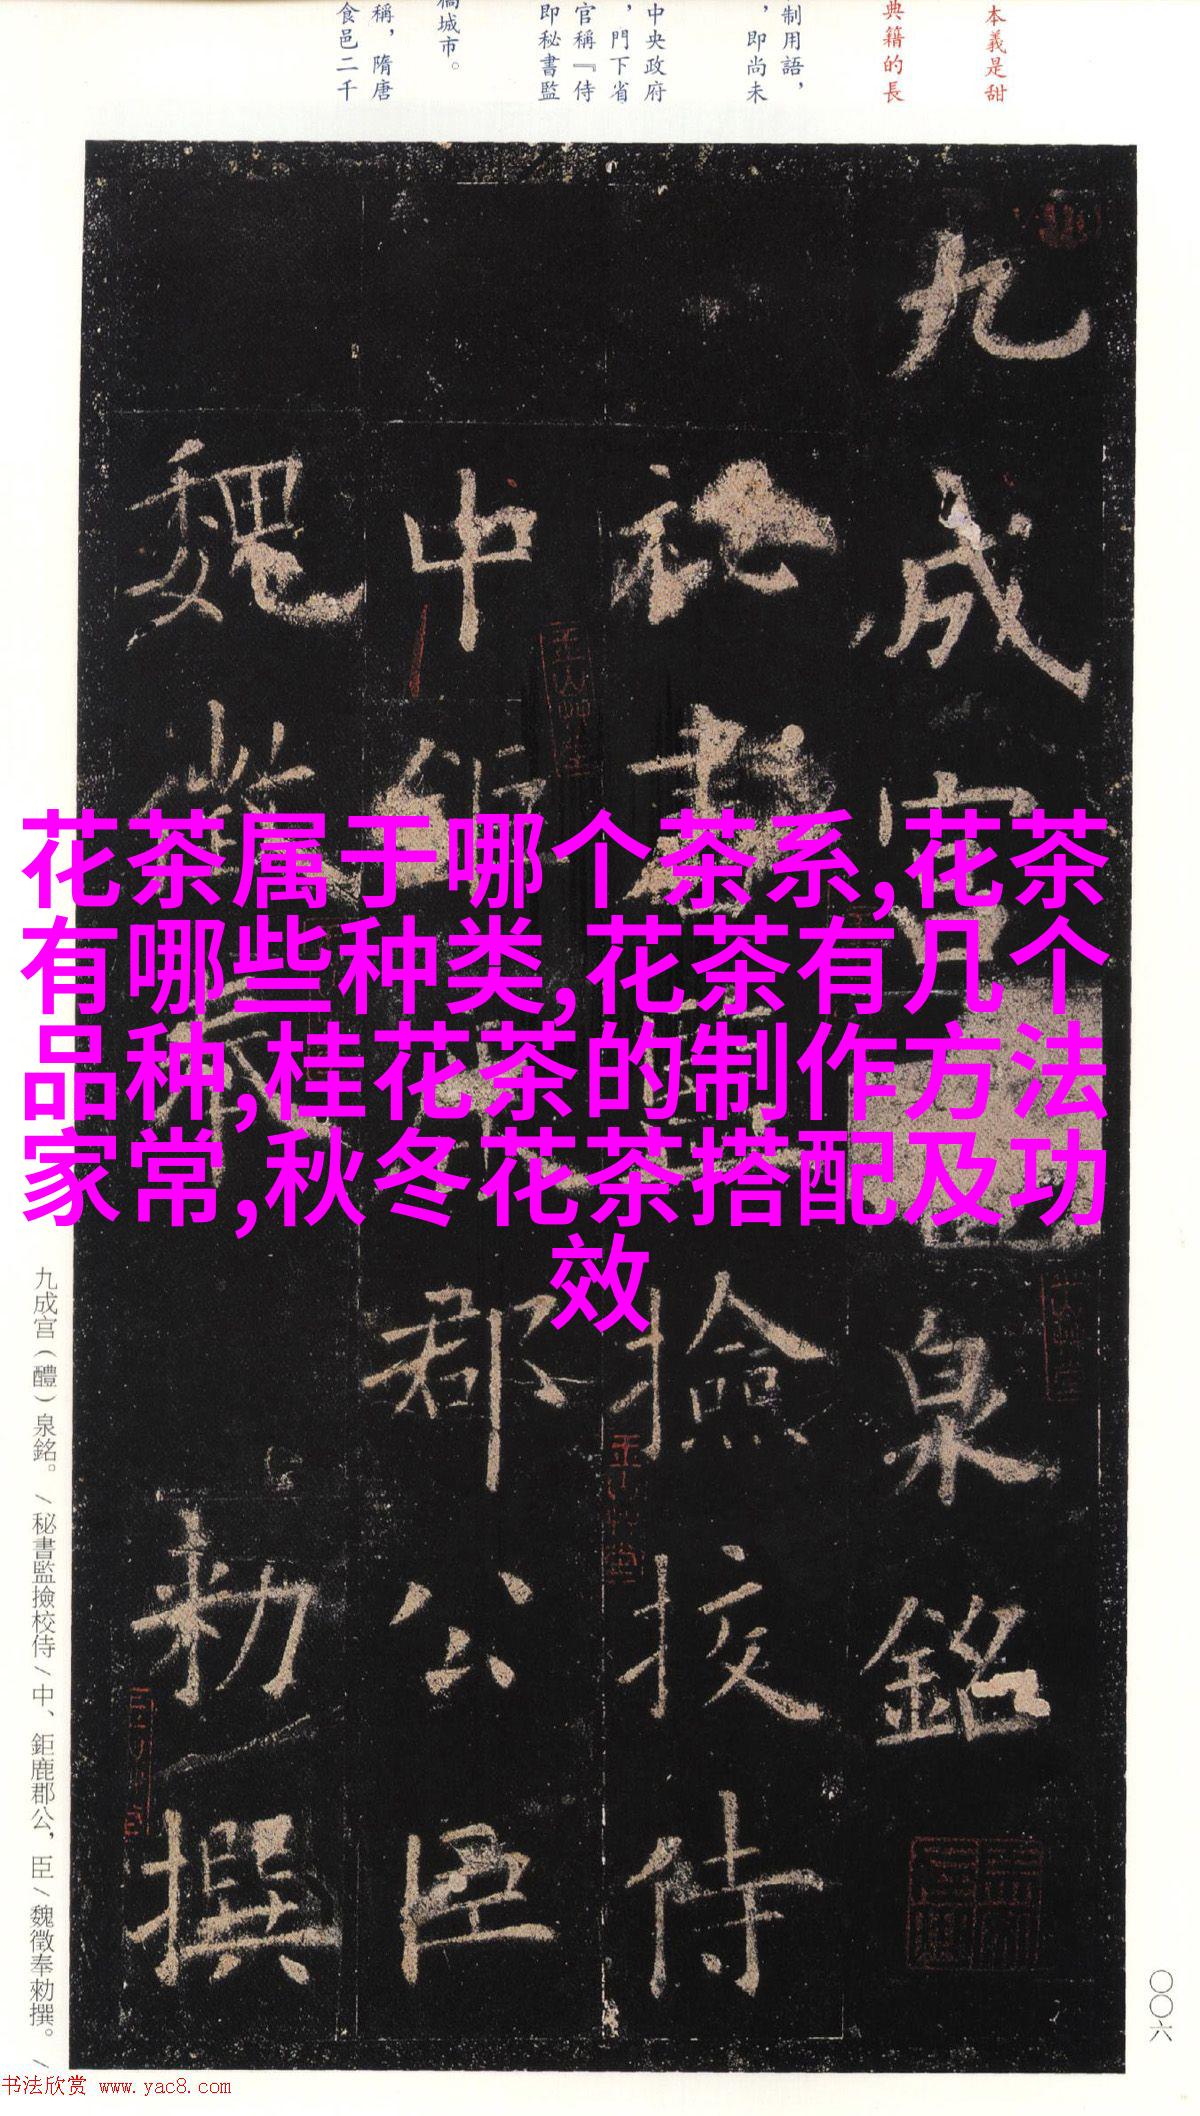 本義是甜
典籍的長
制用語，
，即尚未
中央政府
，門下省
官稱『侍
即秘書監
城市。
稱，隋唐
食邑二千
九成宮
泉銘
秘書
撿挍侍
中
郡公臣
魏
勑撰
花茶属于哪个茶系,花茶
有哪些种类,花茶有几个
品种,桂花茶的制作方法
家常,秋冬花茶搭配及功
效
九成宮（醴）泉銘。/秘書監撿校侍/中、鉅鹿郡公，臣/魏徵奉勑撰。/
〇〇六
书法欣赏 www.yac8.com